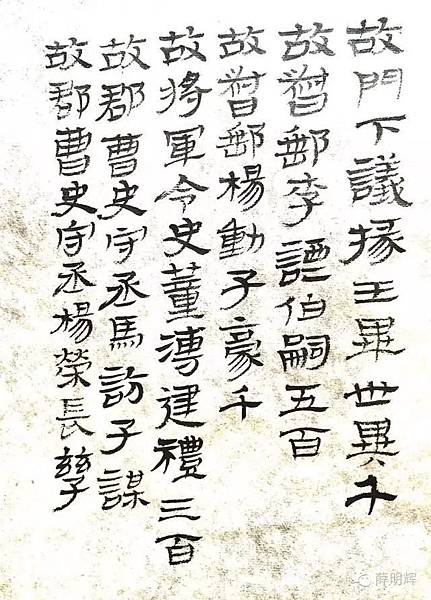 故門下議掾王畢世異千
故督郵李諲伯嗣五百
故督郵楊動子豪千
故將軍令史董溥建禮三百
故郡曹史守丞馬訪子謀
故郡曹史守丞楊榮長孳
薛明辉